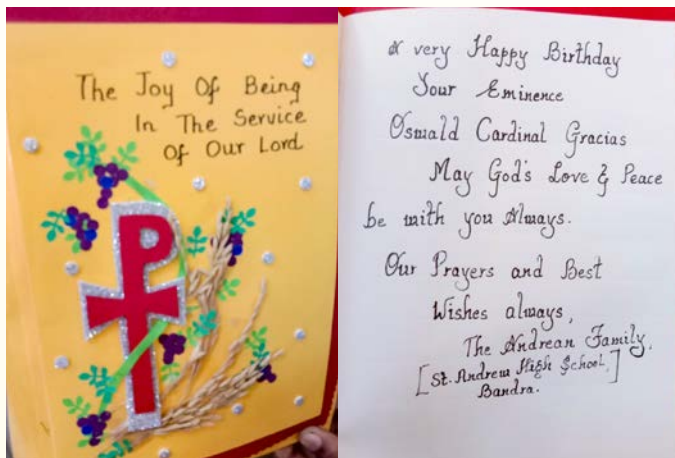 The Joy Of Being
In The Service
Of Our Lord
A very Happy Birthday
Your Eminence
Oswald Cardinal Gracias
May God's Love & Peace
be with you Always.
Our Prayers and Best
Wishes always,
The Andrean Family,
[St. Andrew High School,
Bandra.]